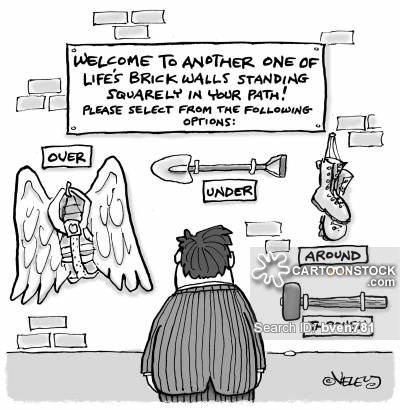 WELCOME TO ANOTHER ONE OF
LIFE'S BRICK WALLS STANDING
SQUARELY IN YOUR PATH!
PLEASE SELECT FROM THE FOLLOWING
OPTIONS:
OVER
UNDER
AROUND
CARTOONSTOCK
.com
Search ID: bven761
©VELEY